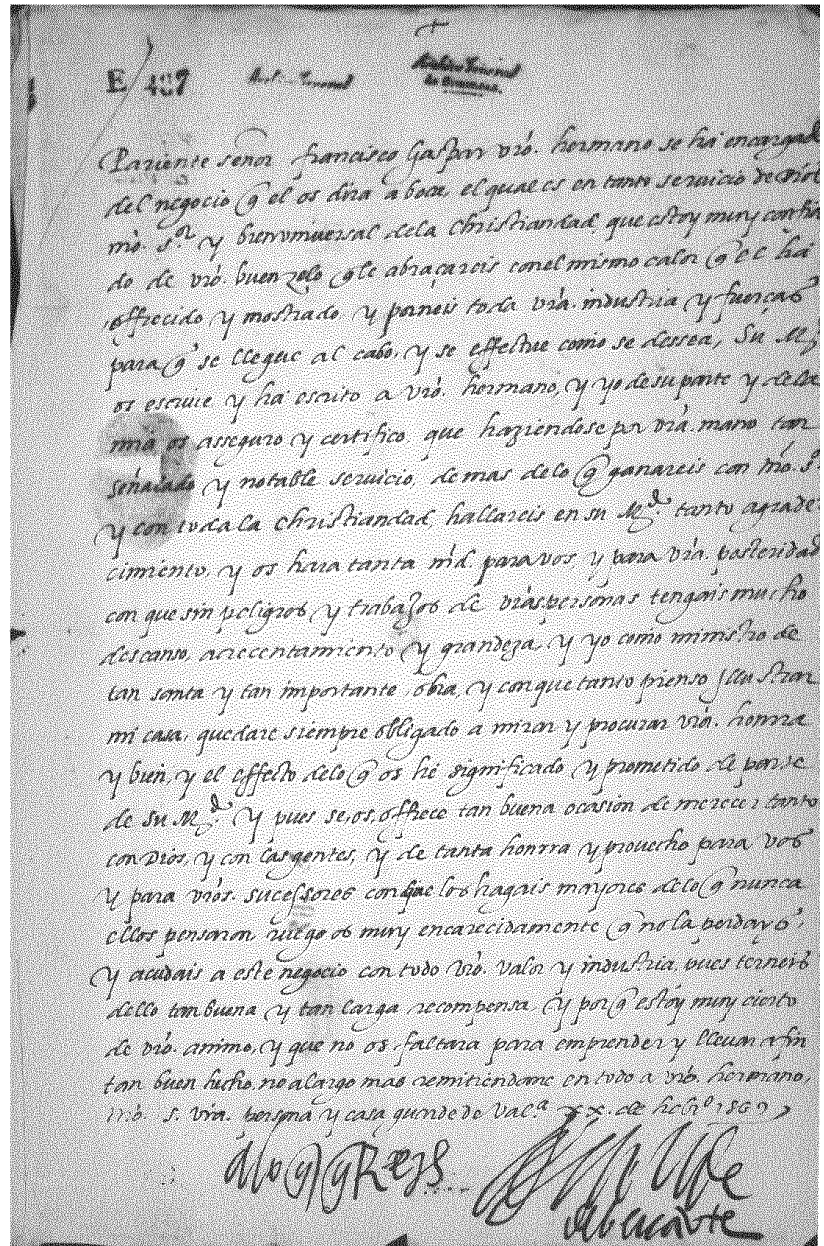 E 487
Archivo General
de Simancas.
Pariente señor francisco gaspar vrõ. hermano se há encargad
del negocio q̃ el os dira a boca, el qual es en tanto seruicio de
nrõ. s.ᵒʳ y bien vniuersal dela christiandad, que estoy muy confia
do de vrõ. buen zelo q̃ le abraçareis con el mismo calor q̃ el há
offrecido y mostrado y porneis toda vrã. industria y fuerças
para q̃ se llegue al cabo, y se effectue como se dessea, Su M.ᵈ
os escriue y há escrito a vrõ. hermano, y yo de su parte y dela
mia os asseguro y certifico, que haziendose por vrã. mano tan
señalado y notable seruicio, demas delo q̃ ganareis con nrõ. s.ᵒʳ
y con toda la christiandad, hallareis en su M.ᵈ tanto agrade
cimiento, y os hara tanta mrd. para vos, y para vrã. posteridad
con que sin peligros y trabajos de vrãs personas tengais mucho
descanso, acrecentamiento y grandeza, y yo como ministro de
tan santa y tan importante obra, y con que tanto pienso Illustrar
mi casa, quedare siempre obligado a mirar y procurar vrã. honrra
y bien, y el effecto delo q̃ os hé significado y prometido de parte
de su M.ᵈ y pues se, os, offrece tan buena ocasion de merecer tanto
con Dios, y con las gentes, y de tanta honrra y prouecho para vos
y para vrõs. sucessores con que los hagais mayores delo q̃ nunca
ellos pensaron, ruego os muy encarecidamente q̃ no la perdays,
y acudais a este negocio con todo vrõ. valor y industria, pues terneis
dello tan buena y tan larga recompensa, y por q̃ estoy muy cierto
de vrõ. animo, y que no os faltara para emprender y lleuar a fin
tan buen hecho, no alargo mas remitiendome en todo a vrõ. hermano,
nrõ. s. vrã. persona y casa guarde de